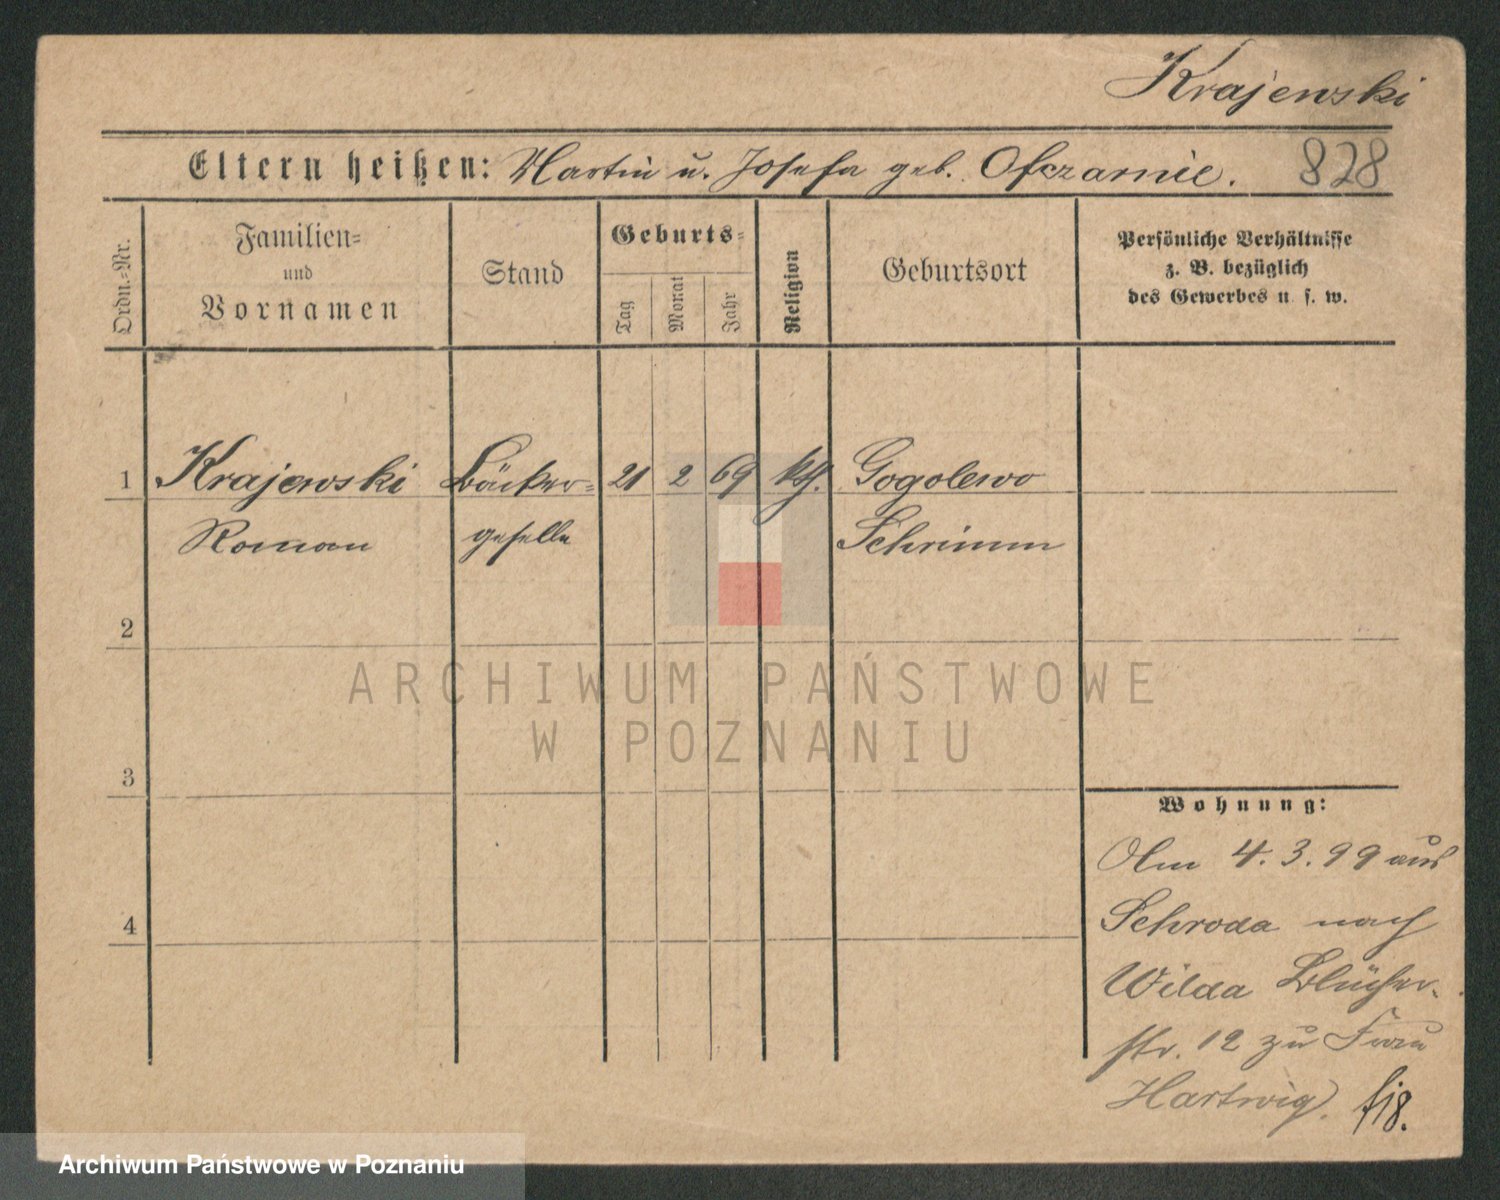 Krajewski
Eltern heißen: Martin u. Josefa geb. Ofczarnie. 828
Ordn.-Nr.
Familien- und Vornamen
Stand
Geburts-
Tag
Monat
Jahr
Religion
Geburtsort
Persönliche Verhältnisse
z. B. bezüglich
des Gewerbes u. s. w.
1 Krajewski Bäcker- 21 2 69 kth. Gogolewo
Roman geselle Schrimm
2
3
4
Wohnung:
Am 4.3.99 aus
Schroda nach
Wilda Blücher-
str. 12 zu Frau
Hartwig.
ARCHIWUM PAŃSTWOWE
W POZNANIU
Archiwum Państwowe w Poznaniu